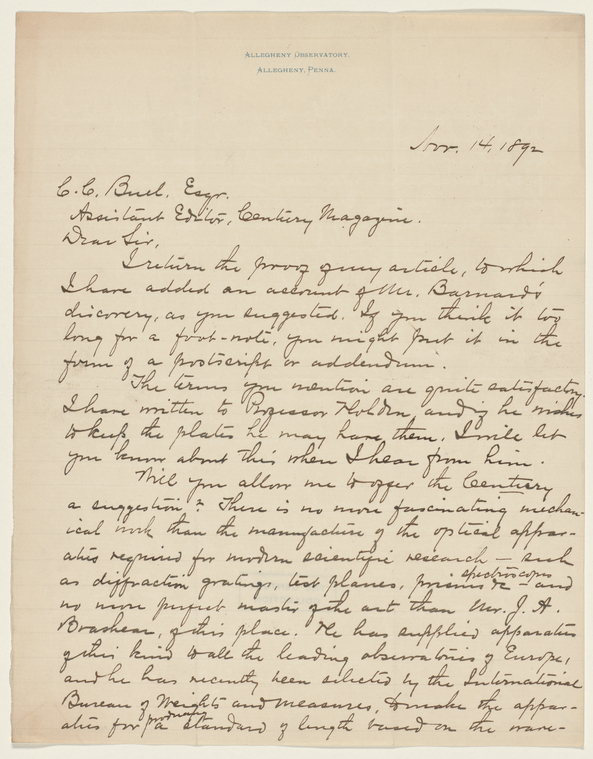 ALLEGHENY OBSERVATORY,
ALLEGHENY, PENNA.
Nov. 14, 1892
C. C. Buel, Esqr.
Assistant Editor, Century Magazine.
Dear Sir,
I return the proof of my article, to which
I have added an account of Mr. Barnard's
discovery, as you suggested. If you think it too
long for a foot-note, you might put it in the
form of a postscript or addendum.
The terms you mention are quite satisfactory.
I have written to Professor Holden, and if he wishes
to keep the plates he may have them. I will let
you know about this when I hear from him.
Will you allow me to offer the Century
a suggestion? There is no more fascinating mechan-
ical work than the manufacture of the optical appar-
atus required for modern scientific research – such
as diffraction gratings, test planes, prisms spectroscopes &c – and
no more perfect master of the art than Mr. J. A.
Brashear, of this place. He has supplied apparatus
of this kind to all the leading observatories of Europe,
and he has recently been selected by the International
Bureau of Weights and Measures, to make the appar-
atus for producing a standard of length based on the wave-